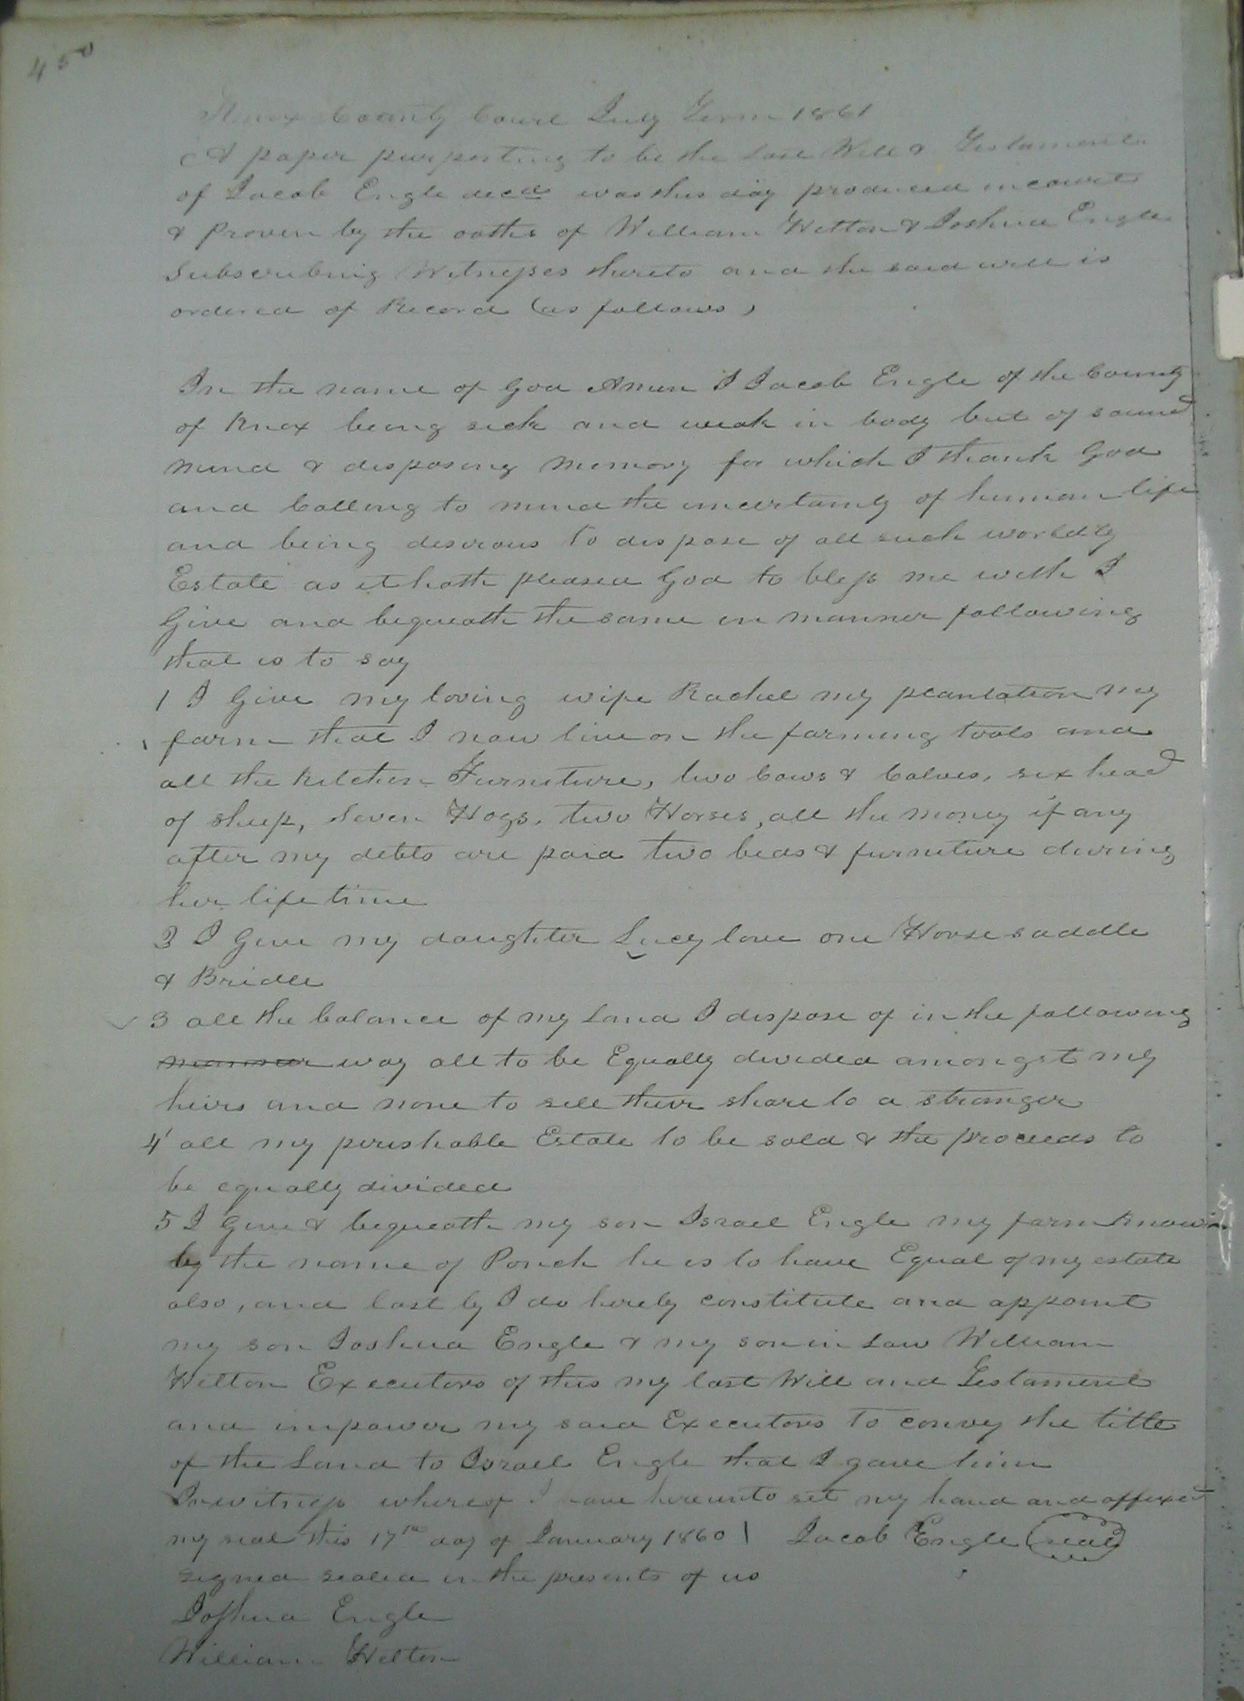 450
Knox County Court July Term 1861
A paper purporting to be the Last Will & Testament
of Jacob Engle decd was this day produced in court
& Proven by the oaths of William Hilton & Joshua Engle
Subscribing Witnesses thereto and the said will is
ordered of Record (as follows)
In the name of God Amen I Jacob Engle of the County
of Knox being sick and weak in body but of sound
mind & disposing Memory for which I thank God
and Calling to mind the uncertainty of human life
and being desirous to dispose of all such worldly
Estate as it hath pleased God to bless me with I
Give and bequeath the same in manner following
that is to say
1 I Give my loving wife Rachel my plantation my
farm that I now live on the farming tools and
all the Kitchen Furniture, two Cows & Calves, six head
of sheep, Seven Hogs, two Horses, all the money if any
after my debts are paid two beds & furniture during
her life time
2 I Give my daughter Lucy love one Horse saddle
& Bridle
3 all the balance of my Land I dispose of in the following
manner way all to be Equally divided amongst my
heirs and none to sell their share to a stranger
4 all my perishable Estate to be sold & the proceeds to
be equally divided
5 I Give & bequeath my son Israel Engle my farm Known
by the name of Ponch he is to have Equal of my estate
also, and last ly I do hereby constitute and appoint
my son Joshua Engle & my son in Law William
Hilton Executors of this my last Will and Testament
and impower my said Executors to convey the title
of the Land to Israel Engle that I gave him
In witness whereof I have hereunto set my hand and affixed
my seal this 17th day of January 1860 Jacob Engle (seal)
signed sealed in the presents of us
Joshua Engle
William Hilton